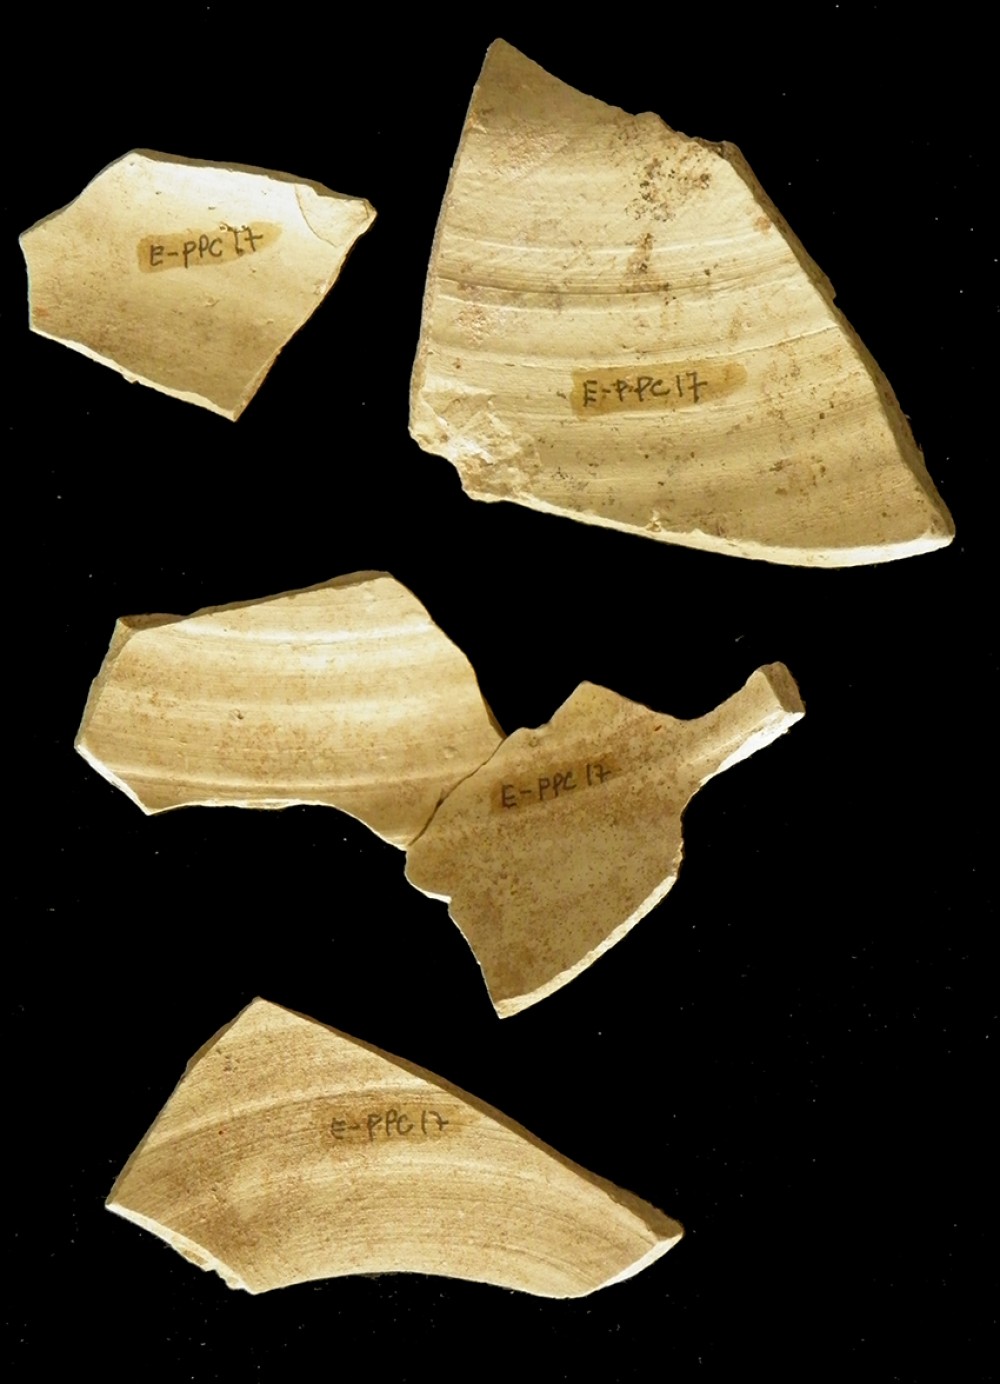 E-PPC 17
E-PPC 17
E-PPC 17
E-PPC 17